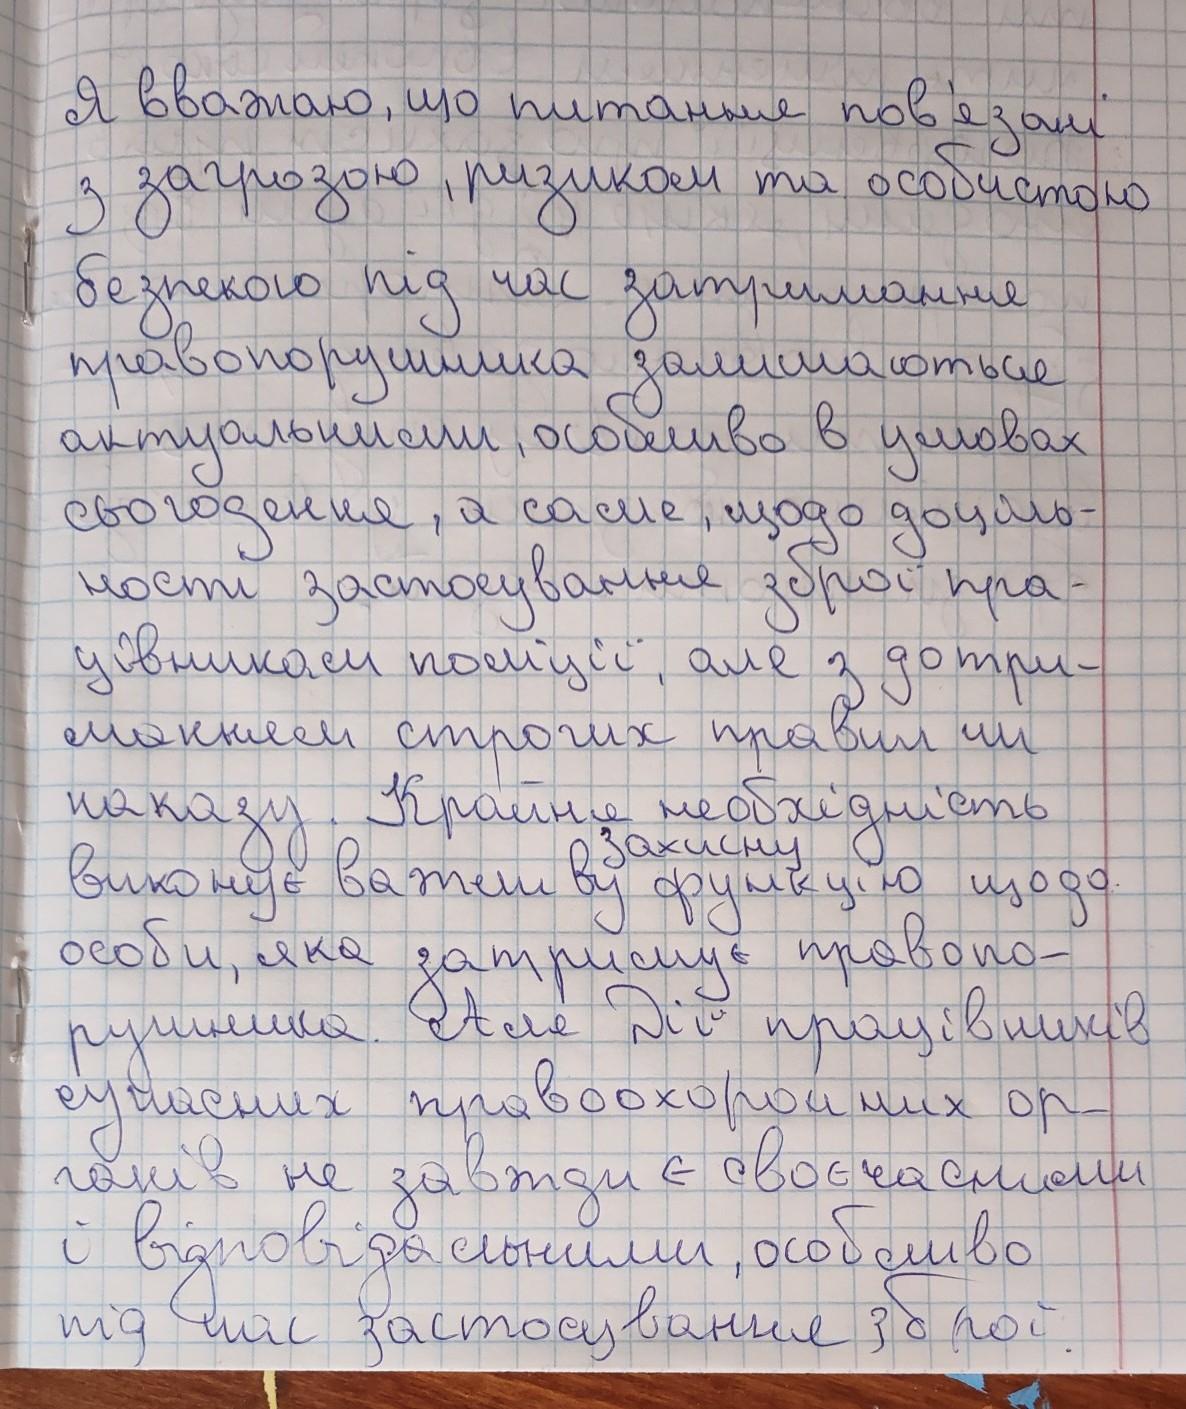 Я вважаю, що питання пов'язані
з загрозою, ризиком та особистою
безпекою під час затримання
правопорушника залишаються
актуальними, особливо в умовах
сьогодення, а саме, щодо доціль-
ності застосування зброї пра-
цівникам поліції, але з дотри-
манням строгих правил чи
наказу. Крайня необхідність
захисну
виконує важливу функцію щодо
особи, яка затримує правопо-
рушника. Але Дії працівників
сучасних правоохоронних ор-
ганів не завжди є своєчасними
і відповідальними, особливо
під час застосування зброї.